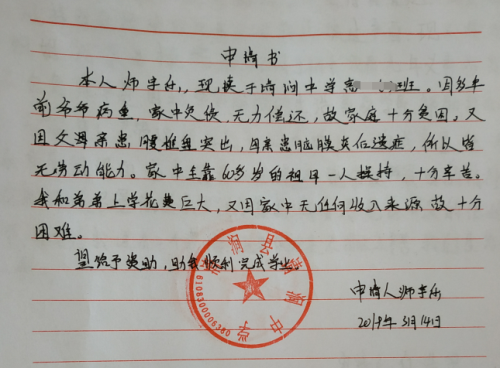 申请书
本人师宇乐,现读于清涧中学高 班。因多年
前爷爷病重,家中负债,无力偿还,故家庭十分贫困。又
因父母亲患腰椎盘突出,母亲患脑膜炎后遗症,所以皆
无劳动能力。家中全靠60多岁的祖母一人操持,十分辛苦。
我和弟弟上学花费巨大,又因家中无任何收入来源 故十分
困难。
望给予资助,助我顺利完成学业。
清涧县清涧中学
6108300005380
申请人师宇乐
2019年 3月14日